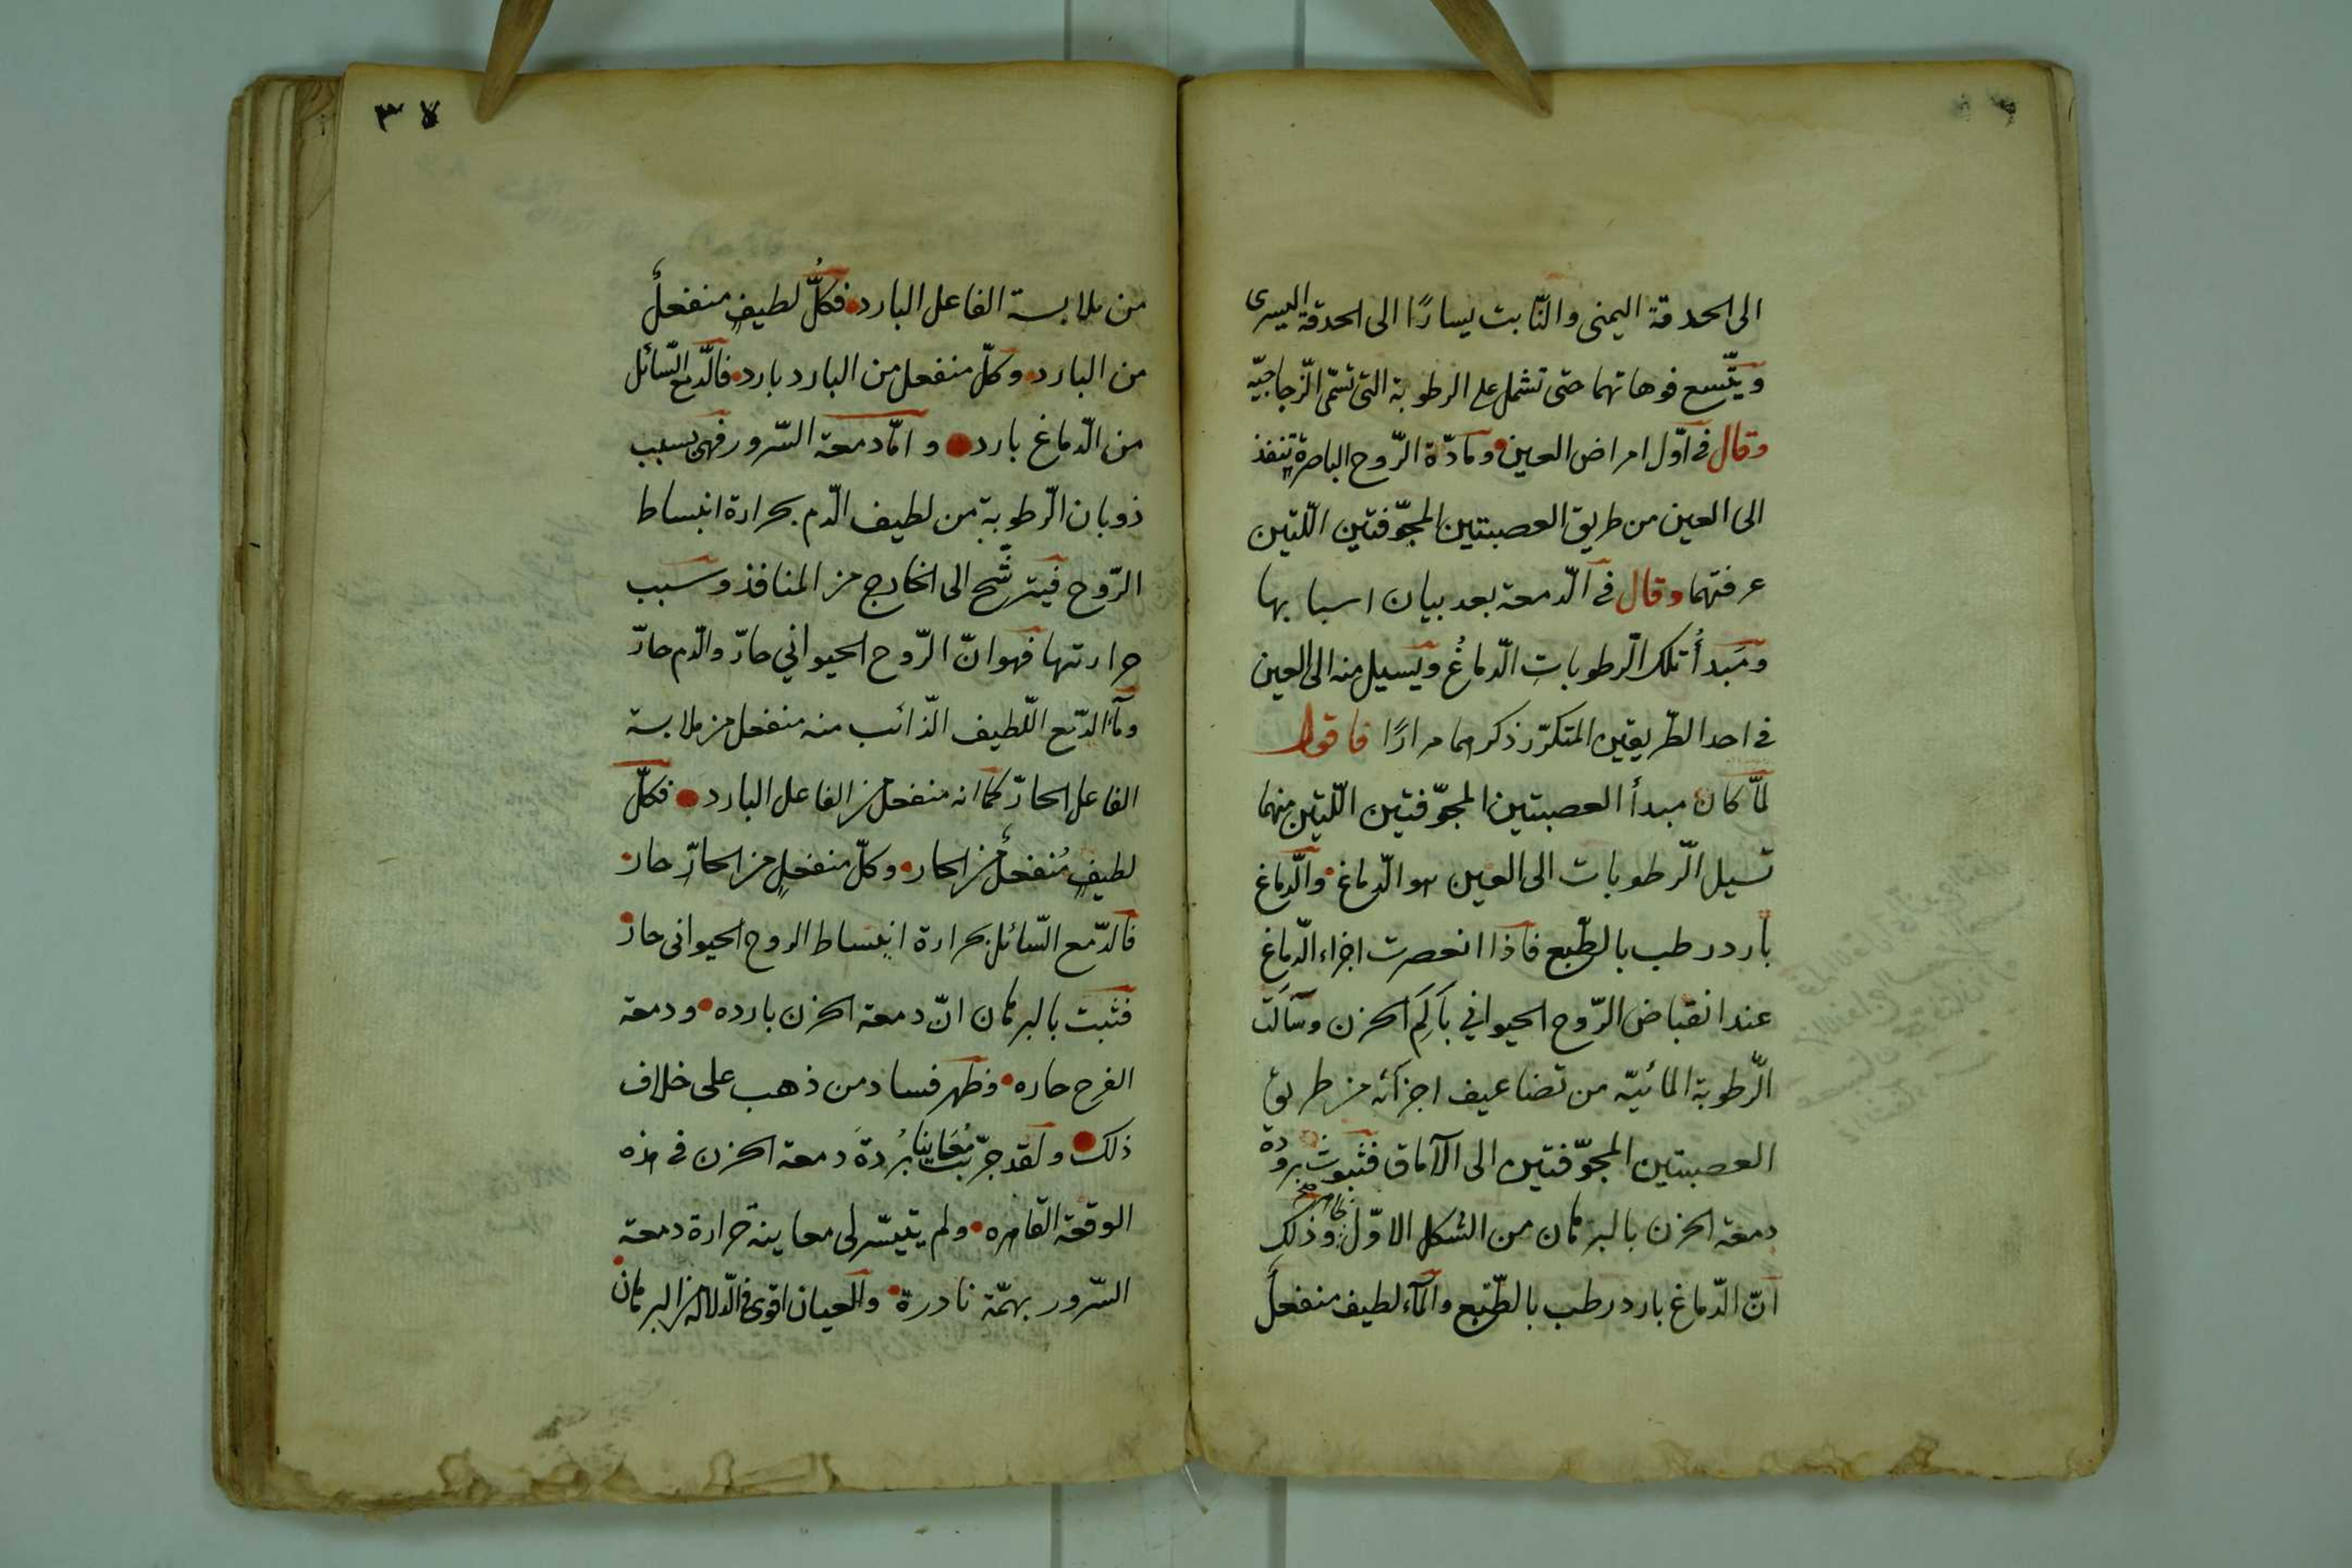 الى الحدقة اليمنى والنّابت يسارًا الى الحدقة اليسرى
ويتّسع فوهاتهما حتى تشمل على الرطوبة التى تسمّى الزّجاجيّه
وقال فى اوّل امراض العين ومادّة الرّوح الباصرة تنفذ
الى العين من طريق العصبتين المجوّفتين اللّتين
عرفتهما وقال فى الدّمعة بعد بيان اسبابها
ومبدأُ تلك الرّطوباتِ الدّماغُ ويسيل منه الى العين
فى احد الطّريقين المتكرّر ذكرهما مرارًا فاقول
لمّا كان مبدأ العصبتين المجوّفتين اللّتين منهما
تسيل الرّطوبات الى العين هو الدّماغ والدّماغ
بارد رطب بالطّبع فاذا انعصرت اجزاء الدّماغ
عند انقباض الرّوح الحيواني بِاَلَمِ الحزن وسَالَت
الرّطوبة المائيّه من تضاعيف اجزائه من طريق
العصبتين المجوّفتين الى الآماق فثبوت برودة
دمعة الحزن بالبرهان من الشكل الاوّل وذلك
انّ الدّماغ بارد رطب بالطّبع والمآء لطيف منفعلٌ
٣٧
من ملابسة الفاعل البارد فكلُّ لطيفٍ منفعلٌ
من البارد وكلّ منفعل من البارد بارد فالدّمع السّائل
من الدّماغ بارد وامّا دمعة السّرور فهى بسبب
ذوبان الرّطوبة من لطيف الدّم بحرارة انبساط
الرّوح فيترشّح الى الخارج من المنافذ وسبب
حرارتها فهو انّ الرّوح الحيواني حارّ والدّم حارّ
ومآء الدّمع اللّطيف الذّائب منه منفعل من ملابسة
الفاعل الحارّ كما انه منفعل من الفاعل البارد فكلّ
لطيفٍ مُنفعلٌ من الحار وكلّ منفعلٍ من الحارّ حار
فالدّمع السّائل بحرارة انبساط الروح الحيوانى حارّ
فثبت بالبرهان انّ دمعة الحزن بارده ودمعة
الفرح حاره وظهر فساد من ذهب على خلاف
ذلك ولقد جرّبت مُعَاينا بُردةَ دمعة الحزن فى هذه
الوقعة القاهره ولم يتيسّر لى معاينة حرارة دمعة
السّرور بهمّة نادرة والعيان اقوى فى الدّلالة من البرهان